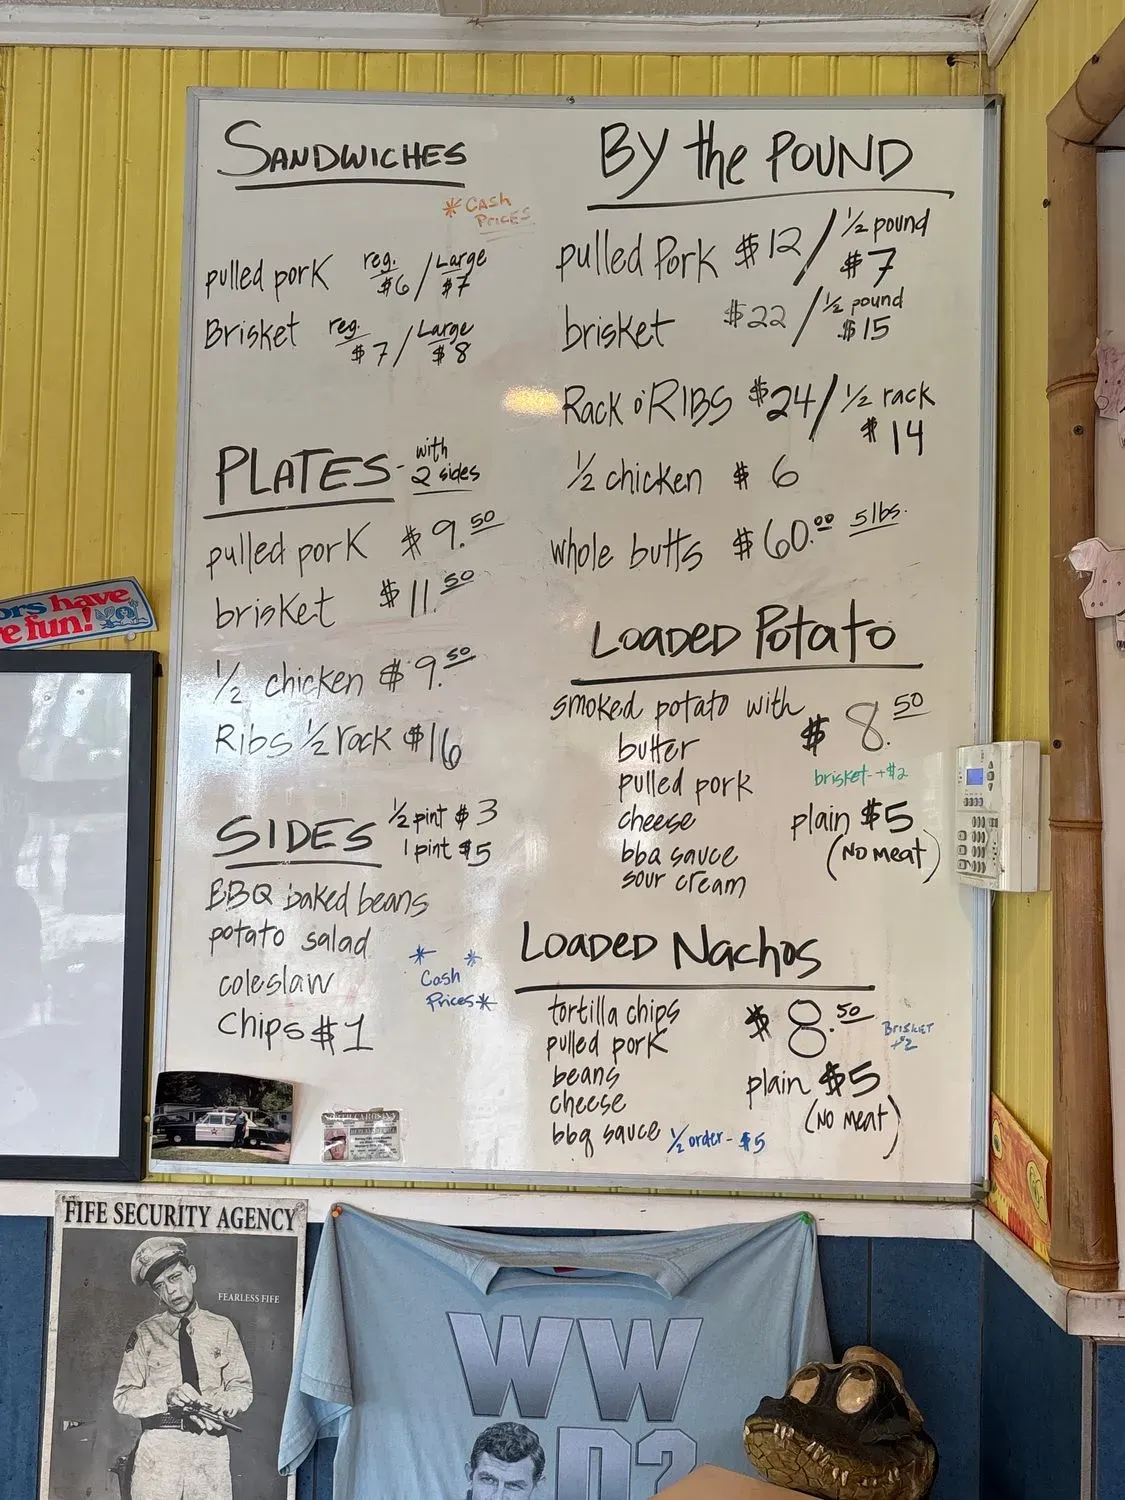 SANDWICHES
* CASH
PRICES
pulled pork reg. $6 / Large $7
Brisket reg. $7 / Large $8
PLATES - with 2 sides
pulled pork $9.50
brisket $11.50
1/2 chicken $9.50
Ribs 1/2 rack $16
SIDES 1/2 pint $3
1 pint $5
BBQ baked beans
potato salad
coleslaw
Chips $1
* *
Cash
Prices*
BY the POUND
pulled Pork $12 / 1/2 pound $7
brisket $22 / 1/2 pound $15
Rack o' RIBS $24 / 1/2 rack $14
1/2 chicken $6
whole butts $60.00 5 lbs.
LOADED POTATO
smoked potato with $8.50
butter
pulled pork brisket +$2
cheese plain $5
bbq sauce (NO MEAT)
sour cream
LOADED NACHOS
tortilla chips $8.50
pulled pork BRISKET +$2
beans plain $5
cheese (NO MEAT)
bbq sauce 1/2 order - $5
ors have
e fun!
FIFE SECURITY AGENCY
FEARLESS FIFE
WW
D?